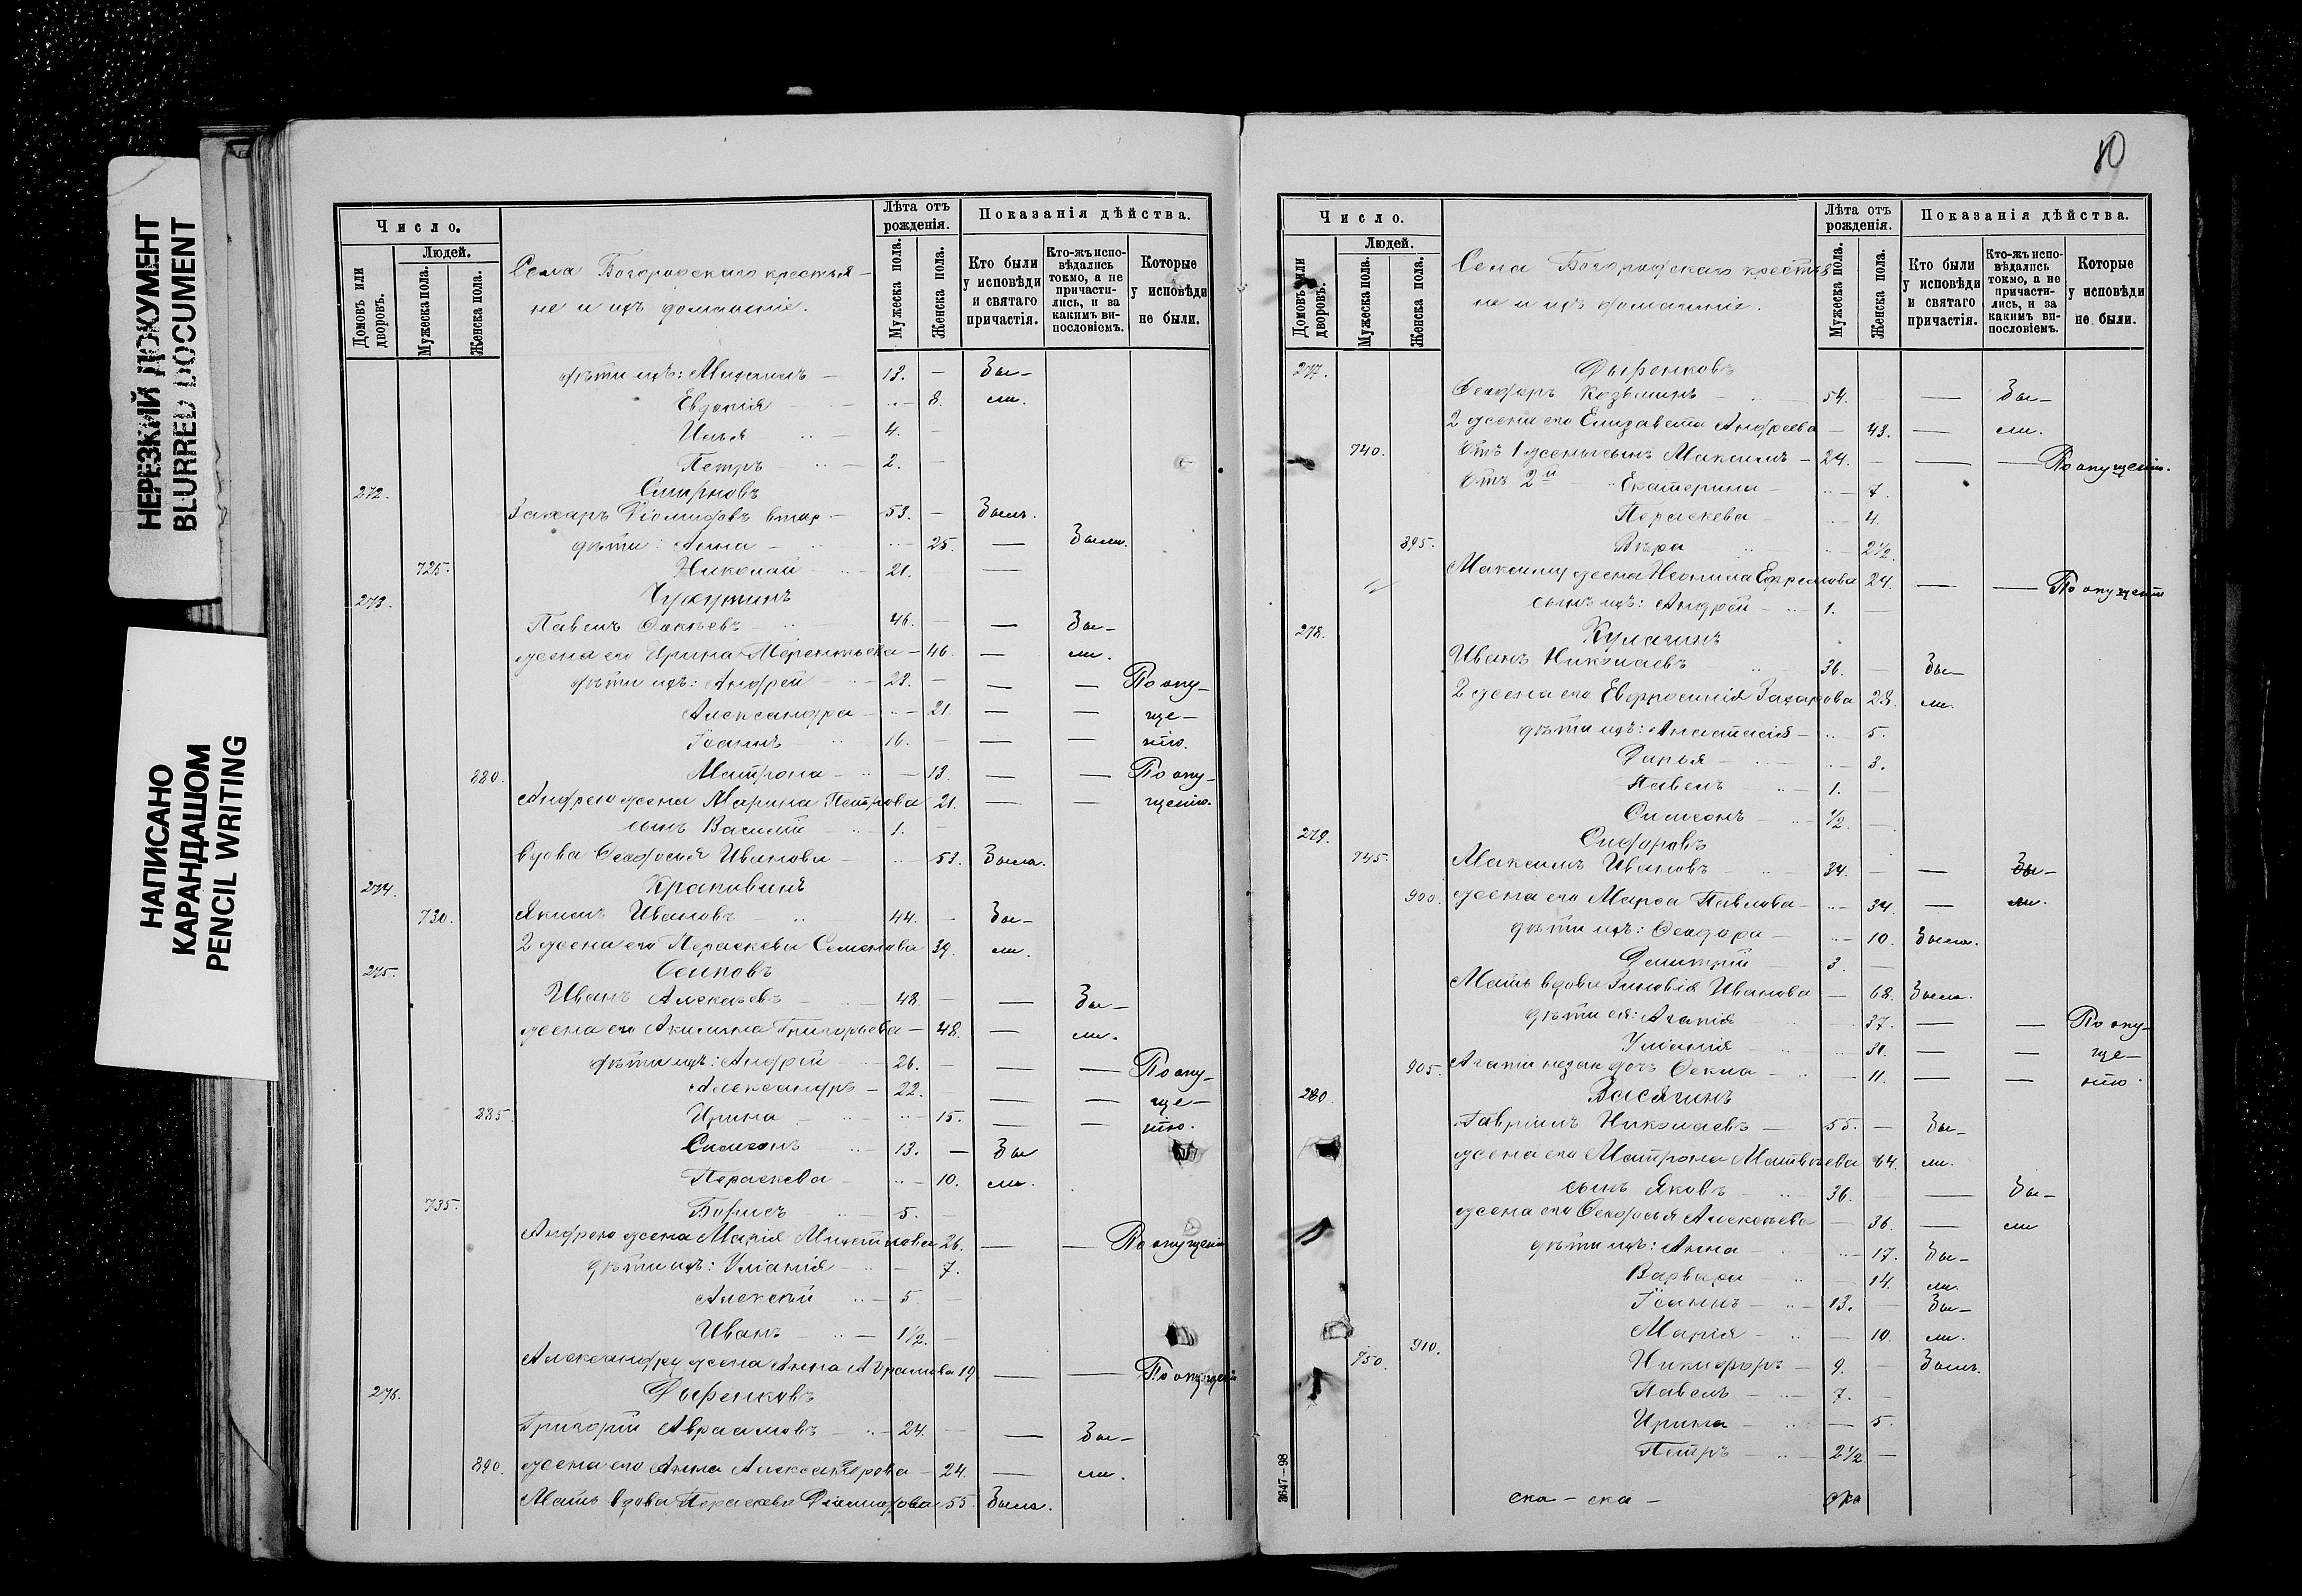 НЕРЕЗКИЙ ДОКУМЕНТ
BLURRED DOCUMENT
НАПИСАНО
КАРАНДАШОМ
PENCIL WRITING
Число.
Людей.
Домовъ или дворовъ.
Мужеска пола.
Женска пола.
Села Богородскаго крестья-
не и ихъ домашніе.
Лѣта отъ рожденія.
Мужеска пола.
Женска пола.
Показанія дѣйства.
Кто были у исповѣди и святаго причастія.
Кто-жъ исповѣдались токмо, а не причастились, и за какимъ винословіемъ.
Которые у исповѣди не были.
дѣти ихъ: Михаилъ – 13. – Бы–
Евдокія – 8. ли.
Илья – 4. –
Петръ – 2. –
272. Смирновъ
Захаръ Діомидовъ вдов – 53. – Былъ.
дѣти: Анна – 25. — Были.
725. Николай – 21. —
273. Чукутинъ
Павелъ – 46. – — Бы–
жена его Ирина Терентьева – 46. — ли.
дѣти ихъ: Андрей – 23. – — — По опу–
Александра – 21. — — ще–
Іоаннъ 16. – — — нію.
880. Матрона – 13. — — По опу–
Андрею жена Марина Петрова 21. — — щенію.
сынъ Василій – 1. –
вдова Ѳеодосья Иванова – 53. Была.
274. Крапивинъ
730. Якимъ Ивановъ – 44. – Бы–
2 жена его Параскева Семенова 39. ли.
275. Осиповъ
Иванъ Алексѣевъ – 48. – — Бы–
жена его Акилина Григорьева – 48. — ли.
дѣти ихъ: Андрей – 26. – — — По опу–
Александръ – 22. — — ще–
885 Ирина – 15. — — нію.
Симеонъ – 13. – Бы
Параскева – 10. ли.
735. Борисъ – 5. –
Андрею жена Марія 26. — — По опущенію
дѣти ихъ: Уліанія – 7.
Алексѣй – 5. –
Иванъ – 1½. –
Александру жена Анна 19. — — По опущенію
276. Дыренковъ
Григорій Авраамовъ – 24. – — Бы–
890. жена его Анна Александрова – 24. — ли.
Мать вдова Параскева Діомидова 55. Была.
80
Число.
Людей.
Домовъ или дворовъ.
Мужеска пола.
Женска пола.
Села Богородскаго крестья
не и ихъ домашніе.
Лѣта отъ рожденія.
Мужеска пола.
Женска пола.
Показанія дѣйства.
Кто были у исповѣди и святаго причастія.
Кто-жъ исповѣдались токмо, а не причастились, и за какимъ винословіемъ.
Которые у исповѣди не были.
277. Дыренковъ
Ѳеодоръ Козьминъ – 54. — Бы–
2 жена его Елизавета Андреева – 43. — ли.
740. Отъ 1 жены сынъ Максимъ – 24. – — — По опущенію.
Отъ 2й – Екатерина – 7.
Параскева – 4.
895. Вѣра – 2½
Максиму жена Неонила Ефремова 24. — — По опущенію
сынъ ихъ: Андрей – 1. –
278. Кулагинъ
Иванъ Николаевъ 36. – Бы–
2 жена его Евфросинія Захарова 28. ли.
дѣти ихъ: Анастасія – 5.
Дарья – 3.
Павелъ – 1. –
Симеонъ – ½. –
279. Сидоровъ
745. Максимъ Ивановъ – 34. – — Бы–
900. жена его Марѳа Павлова – 34. — ли.
дѣти ихъ: Ѳеодора – 10. Была.
Димитрій – 3. –
Мать вдова Зиновія Иванова – 68. Была.
дѣти ея: Агапія – 37. — — По опу–
Уліанія – 31. — — ще–
905. Агапіи незак дочь Ѳекла – 11. — — нію.
280 Васягинъ
Гавріилъ Николаевъ – 55. – Бы–
жена его Матрона Матвѣева 64. ли.
сынъ Яковъ – 36. – — Бы–
жена его Ѳеодосья Алексѣева – 36. — ли
дѣти ихъ: Анна – 17. Бы–
Варвара – 14. ли.
Іоаннъ – 13. – Бы–
910. Марія – 10. ли.
750. Никифоръ – 9. – Былъ.
Павелъ – 7. –
Ирина – 5.
Петръ – 2½ –
ска – ска –
3647—98